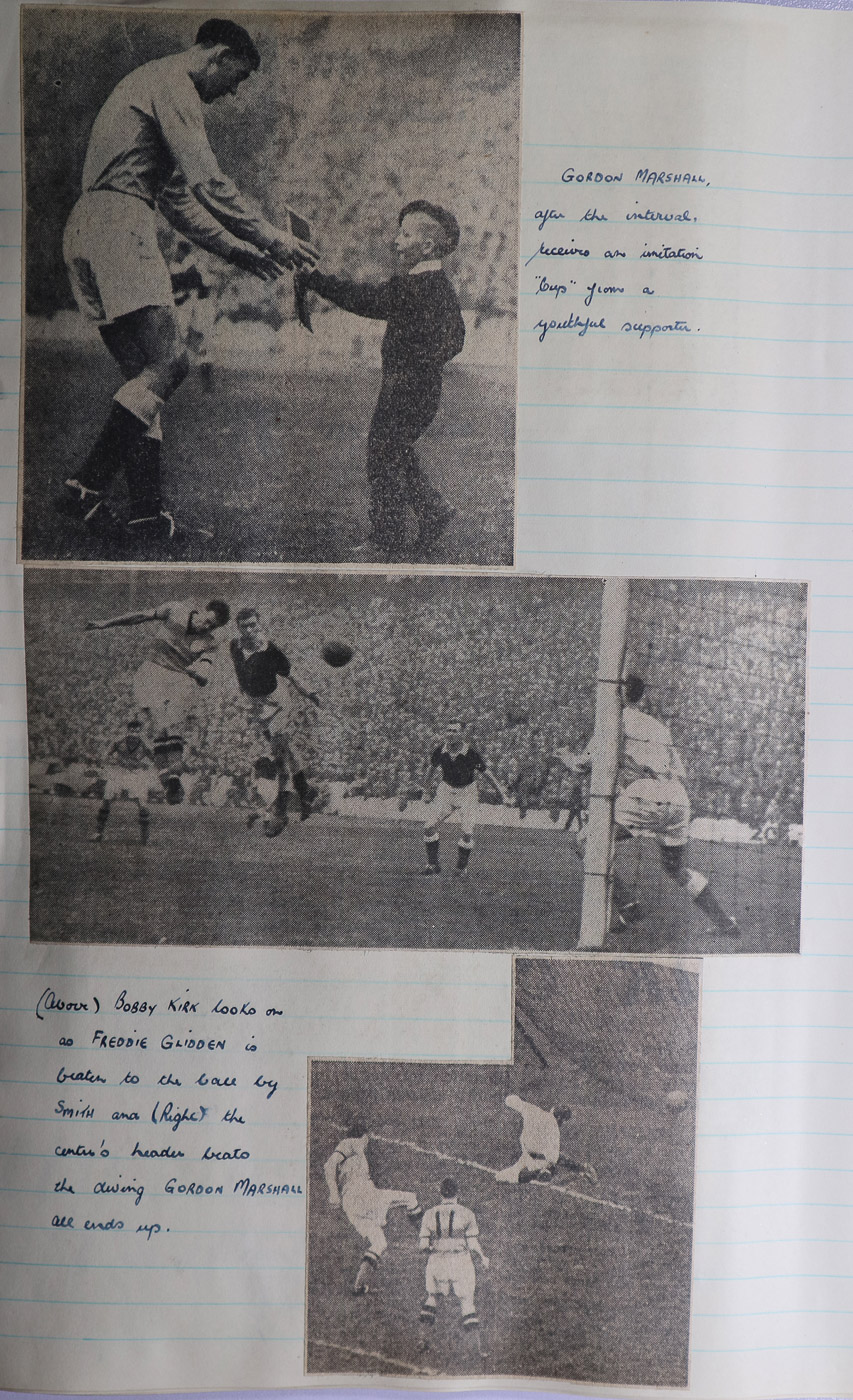 GORDON MARSHALL,
after the interval,
receives an imitation
"Cup" from a
youthful supporter.
20
(Above) BOBBY KIRK looks on
as FREDDIE GLIDDEN is
beaten to the ball by
SMITH and (Right) the
centre's header beats
the diving GORDON MARSHALL
all ends up.
11